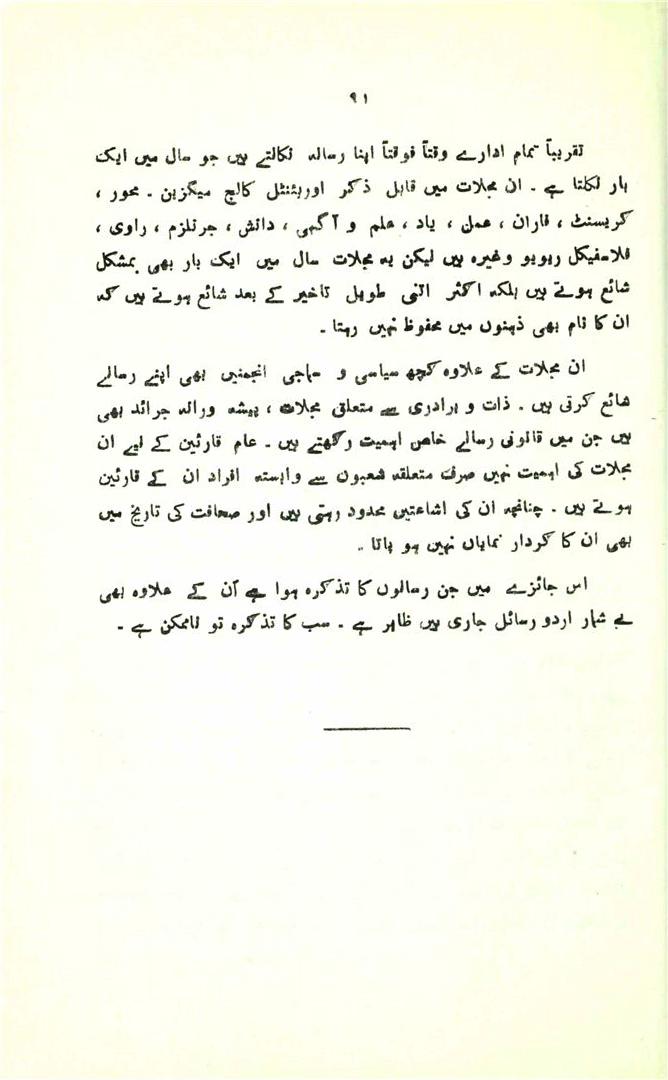 ۹۱
تقریباً تمام ادارے وقتاً فوقتاً اپنا رسالہ نکالتے ہیں جو سال میں ایک
بار نکلتا ہے ۔ ان مجلات میں قابل ذکر اوریئنٹل کالج میگزین ۔ محور ،
کریسنٹ ، فاران ، عمل ، یاد ، علم و آگہی ، دانش ، جرنلزم ، راوی ،
فلاسفیکل ریویو وغیرہ ہیں لیکن یہ مجلات سال میں ایک بار بھی بمشکل
شائع ہوتے ہیں بلکہ اکثر اتنی طویل تاخیر کے بعد شائع ہوتے ہیں کہ
ان کا نام بھی ذہنوں میں محفوظ نہیں رہتا ۔
ان مجلات کے علاوہ کچھ سیاسی و سماجی انجمنیں بھی اپنے رسالے
شائع کرتی ہیں ۔ ذات و برادری سے متعلق مجلات ، پیشہ ورانہ جرائد بھی
ہیں جن میں قانونی رسالے خاص اہمیت رکھتے ہیں ۔ عام قارئین کے لیے ان
مجلات کی اہمیت نہیں صرف متعلقہ شعبوں سے وابستہ افراد ان کے قارئین
ہوتے ہیں ۔ چنانچہ ان کی اشاعتیں محدود رہتی ہیں اور صحافت کی تاریخ میں
بھی ان کا کردار نمایاں نہیں ہو پاتا ۔
اس جائزے میں جن رسالوں کا تذکرہ ہوا ہے اُن کے علاوہ بھی
بے شمار اردو رسائل جاری ہیں ظاہر ہے ۔ سب کا تذکرہ تو ناممکن ہے ۔